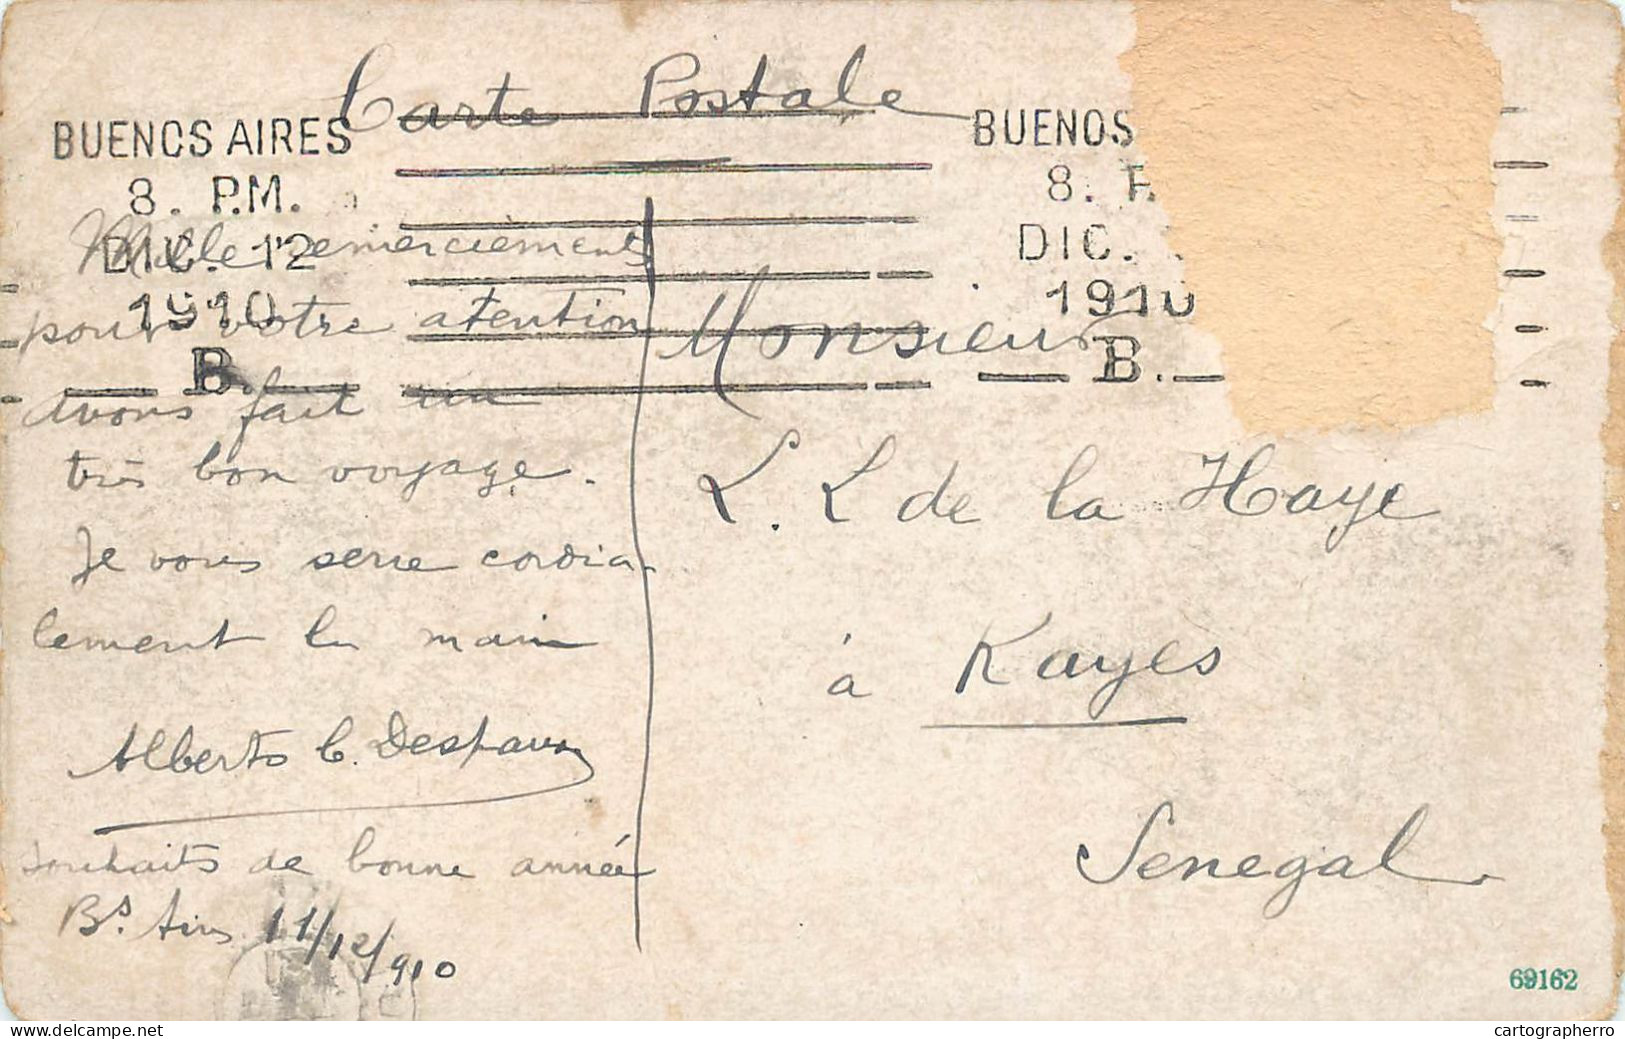 Carte Postale
BUENOS AIRES
8. P.M.
DIC. 12
1910
B.
BUENOS
8. P
DIC.
1910
B.
Mille remerciements
pour votre atention
avons fait un
très bon voyage.
Je vous serre cordia-
lement la main
Alberto C.
souhaits de bonne année
Bs. Aires 11/12/910
Monsieur
L. L de la Haye
à Kayes
Senegal
69162
cartographerro